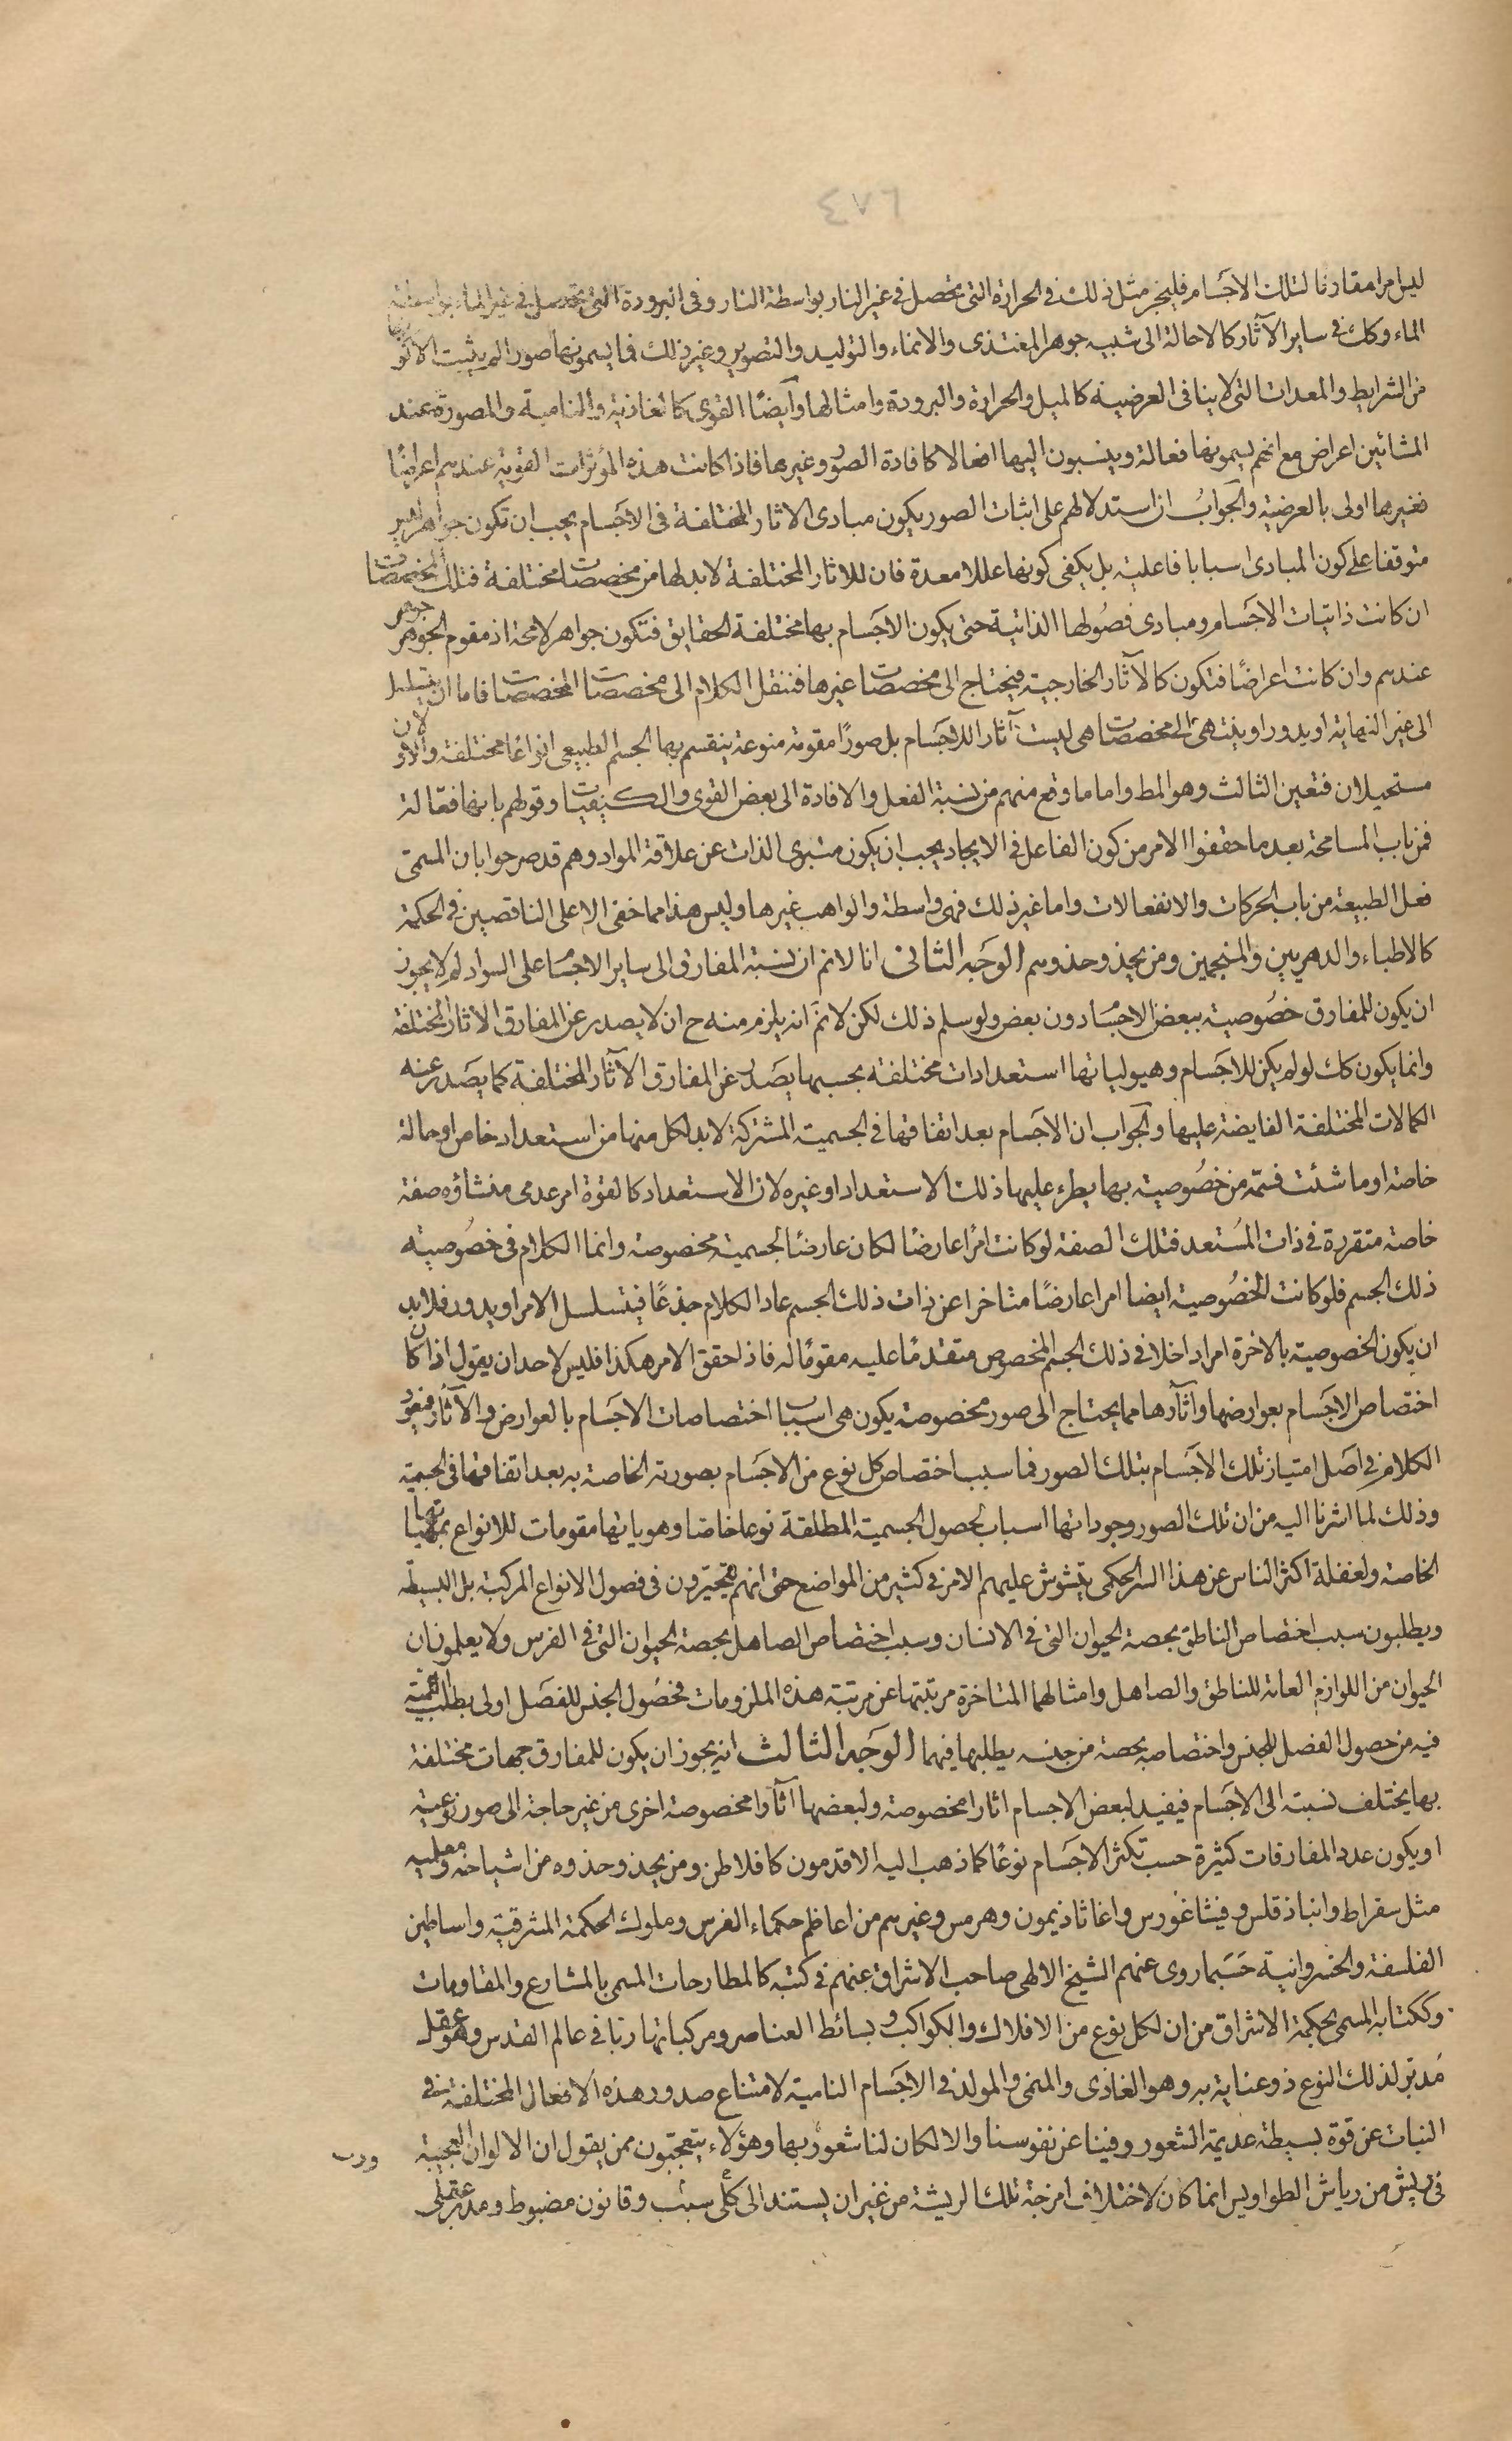 ٤٧٦
ليس امرا مقارنا لتلك الاجسام فليجز مثل ذلك فى الحرارة التى تحصل فى غير النار بواسطة النار وفى البرودة التى تحصل فى غير الماء بواسطة
الماء وكك فى ساير الآثار كالاحالة الى شبيه جوهر المغتذى والانماء والتوليد والتصوير وغير ذلك فما يسمونها صورا لم يثبت الا كونها
من الشرايط والمعدات التى لا ينافى العرضية كالميل والحرارة والبرودة وامثالها وايضًا القوى كالغاذية والنامية والمصورة عند
المشائين اعراض مع انهم يسمونها فعالة وينسبون اليها افعالا كافادة الصور وغيرها فاذا كانت هذه المؤثرات القوية عندهم اعراضًا
فغيرها اولى بالعرضية والجوابُ ان استدلالهم على اثبات الصور بكون مبادى الاثار المختلفة فى الاجسام يجب ان تكون جواهر ليس
متوقفا على كون المبادى اسبابا فاعلية بل يكفى كونها عللا معدة فان للاثار المختلفة لابد لها من مخصصات مختلفة فتلك المخصصات
ان كانت ذاتيات الاجسام ومبادى فصُولها الذاتية حتى يكون الاجسام بها مختلفة الحقايق فتكون جواهر لامحة اذ مقوم الجوهر جوهر
عندهم وان كانت اعراضًا فتكون كالآثار الخارجية فيحتاج الى مخصصات غيرها فننقل الكلام الى مخصصات المخصصات فاما ان يتسلسل
الى غير النهاية او يدور او ينتهى الى مخصصات هى ليست آثار اللاجسام بل صورًا مقومة منوعة ينقسم بها الجسم الطبيعى انواعًا مختلفة والاولان
مستحيلان فتعين الثالث وهو المط واما ما وقع منهم من نسبة الفعل والافادة الى بعض القوى والكيفيات وقولهم بانها فعّالة
فمن باب المسامحة بعد ما حققوا الامر من كون الفاعل فى الايجاد يجب ان يكون متبرى الذات عن علاقة المواد وهم قد صرحوا بان المسمّى
فعل الطبيعة من باب الحركات والانفعالات واما غير ذلك فهى واسطة والواهب غيرها وليس هذا مما خفى الا على الناقصين فى الحكمة
كالاطباء والدهريين والمنجمين ومن يحذو حذوهم الوجه الثانى انا لا نم ان نسبة المفارق الى ساير الاجسام على السواء لم لا يجوز
ان يكون للمفارق خصُوصية ببعض الاجسام دون بعض ولو سلم ذلك لكن لا نمَ انه يلزم منه ح ان لا يصدر عن المفارق الاثار المختلفة
وانما يكون كك لو لم يكن للاجسام وهيولياتها استعدادات مختلفة بحسبها يصَدر عن المفارق الآثار المختلفة كما يصَدر عنه
الكمالات المختلفة الفايضة عليها والجواب ان الاجسام بعد اتفاقها فى الجسمية المشتركة لابد لكل منها من استعداد خاص او حالة
خاصة او ما شئت فسمّه من خصُوصية بها يطرء عليها ذلك الاستعداد او غيره لان الاستعداد كالقوة امر عدمى منشاؤه صفة
خاصة متقررة فى ذات المُستعد فتلك الصفة لو كانت امرًا عارضًا لكان عارضًا لجسمية مخصوصة وانما الكلام فى خصُوصية
ذلك الجسم فلو كانت الخصُوصية ايضا امرا عارضًا متاخرا عن ذات ذلك الجسم عاد الكلام جذعًا فيتسلسل الامر او يدور فلابد
ان يكون الخصوصية بالاخرة امرا داخلا فى ذلك الجسم المخصوص متقدمًا عليه مقومًا له فاذا حقق الامر هكذا فليس لاحد ان يقول اذا كان
اختصاص الاجسام بعوارضها وآثارها مما يحتاج الى صور مخصوصة يكون هى اسباب اختصاصات الاجسام بالعوارض والآثار فيعود
الكلام فى اصل امتياز تلك الاجسام بتلك الصور فما سبب اختصاص كل نوع من الاجسام بصورته الخاصة به بعد اتفاقها فى الجسمية
وذلك لما اشرنا اليه من ان تلك الصور وجوداتها اسباب لحصول الجسمية المطلقة نوعا خاصا وهوياتها مقومات للانواع بمهياتها
الخاصة ولغفلة اكثر الناس عن هذا السر الحكمى يتشوش عليهم الامر فى كثير من المواضع حتى انهم يتحيّرون فى فصول الانواع المركبة بل البسيطة
ويطلبون سبب اختصاص الناطق بحصة الحيوان التى فى الانسان وسبب اختصاص الصاهل بحصة الحيوان التى فى الفرس ولا يعلمون ان
الحيوان من اللوازم العامة للناطق والصاهل وامثالهما المتاخرة مرتبتها عن مرتبة هذه الملزومات فحصُول الجنس للفصَل اولى بطلب اللمية
فيه من حصول الفصل للجنس واختصاصه بحصة من جنسه يطلبها فيهما الوَجه الثالث انه يجوز ان يكون للمفارق جهات مختلفة
بها يختلف نسبته الى الاجسام فيفيد لبعض الاجسام اثارا مخصوصة ولبعضها آثارا مخصوصة اخرى من غير حاجة الى صور نوعية
او يكون عدد المفارقات كثيرة حسب تكثر الاجسام نوعًا كما ذهب اليه الاقدمون كافلاطن ومن يحذو حذوه من اشياخه ومعلميه
مثل سقراط وانباذقلس وفيثاغورس واغاثاذيمون وهرمس وغيرهم من اعاظم حكماء الفرس وملوك الحكمة المشرقية واساطين
الفلسفة والخسروانية حَسبَما روى عنهم الشيخ الالهى صاحب الاشراق عنهم فى كتبه كالمطارحات المسمى بالمشارع والمقاومات
وككتابه المسمى بحكمة الاشراق من ان لكل نوع من الافلاك والكواكب وبسائط العناصر ومركباتها ربا فى عالم القدس وهو عقل
مُدبّر لذلك النوع ذو عناية به وهو الغاذى والمنمى والمولد فى الاجسام النامية لامتناع صدور هذه الافعال المختلفة فى
النبات عن قوة بسيطة عديمة الشعور وفينا عن نفوسنا والا لكان لنا شعور بها وهؤلاء يتعجّبون ممن يقول ان الالوان العجيبة
فى ريش من رياش الطواويس انما كان لاختلاف امزجة تلك الريشة من غير ان يستند الى كلى سبب وقانون مضبوط ومدبر عقلى
ورب